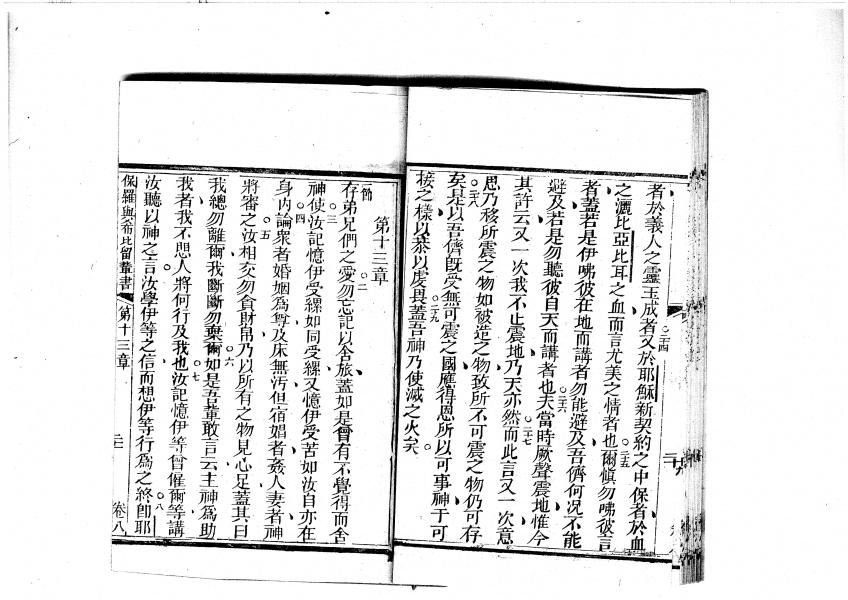 者於義人之靈玉成者又於耶穌新契約之中保者於血
之灑比亞比耳之血而言尤美之情者也爾慎勿咈彼言
者蓋若是伊咈彼在地而講者勿能避及吾儕何况不能
避及若是勿聽彼自天而講者也夫當時厥聲震地惟今
其許云又一次我不止震地乃天亦然而此言又一次意
思乃移所震之物如被造之物致所不可震之物仍可存
矣是以吾儕旣受無可震之國應得恩所以可事神于可
接之樣以恭以虔畏蓋吾神乃使滅之火矣
第十三章
存弟兄們之愛勿忘記以舍旅蓋如是曾有不覺得而舍
神使汝記憶伊受縲如同受縲又憶伊受苦如汝自亦在
身內論衆者婚姻爲尊及床無污但宿娼者姦人妻者神
將審之汝相交勿貪財帛乃以所有之物見心足蓋其曰
我總勿離爾我斷斷勿棄爾如是吾輩敢言云主神爲助
我者我不思人將何行及我也汝記憶伊等曾催爾等講
汝聽以神之言汝學伊等之信而想伊等行爲之終卽耶
保羅與希比留輩書 第十三章 卷八